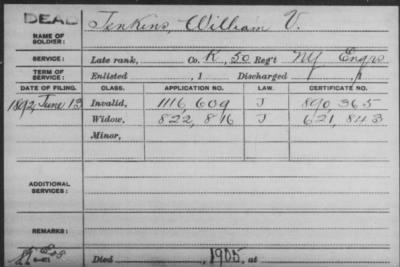 DEAD
NAME OF SOLDIER: Jenkins, William V.
SERVICE: Late rank, Co. K, 50 Reg't NY Engrs
TERM OF SERVICE: Enlisted , 1 Discharged , 1
DATE OF FILING. CLASS. APPLICATION NO. LAW. CERTIFICATE NO.
1892, June 13 Invalid, 1116,609 J 890,365
Widow, 822,816 J 621,843
Minor,
ADDITIONAL SERVICES:
REMARKS:
Died 1905, at